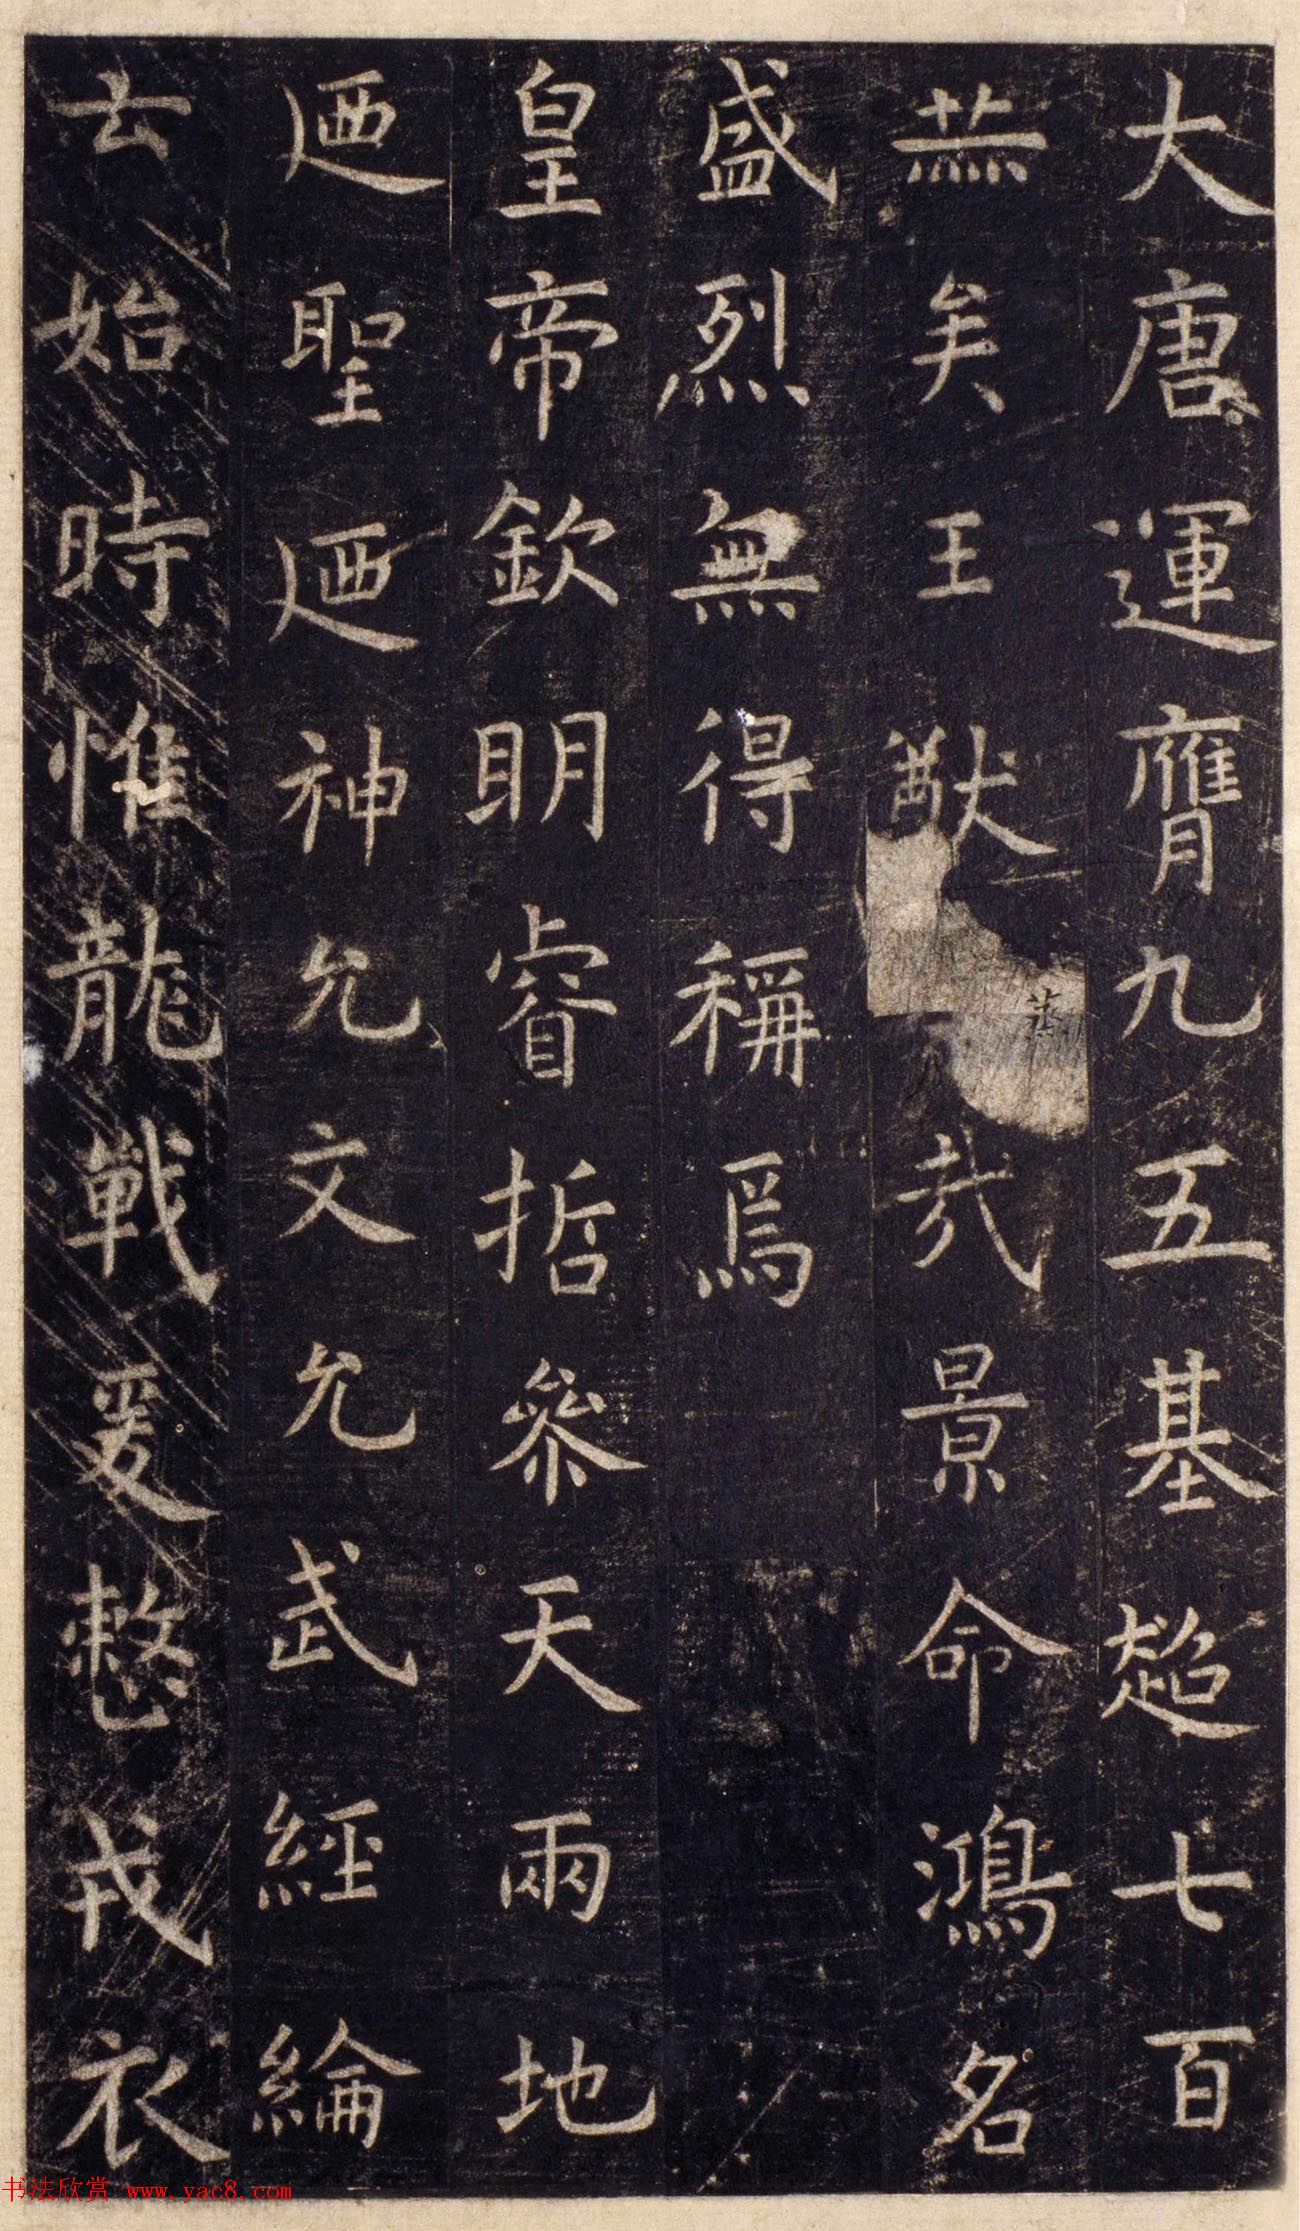 大唐運膺九五基超七百
𣠮矣王猷 哉景命鴻名
盛烈無得稱焉
皇帝欽明睿哲參天兩地
迺聖迺神允文允武經綸
云始時惟龍戰爰整戎衣
书法欣赏 www.yac8.com